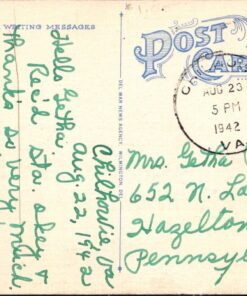 WRITING MESSAGES
Chilhowie, Va
Aug. 22, 1942
Hello Getha:
Rec'd Sta. okey &
thanks so very much.
DEL MAR NEWS AGENCY, WILMINGTON, DEL.
POST
CAR
AUG 23
5 PM
1942
VA
Mrs. Getha
652 N. L
Hazelton
Pennsyl